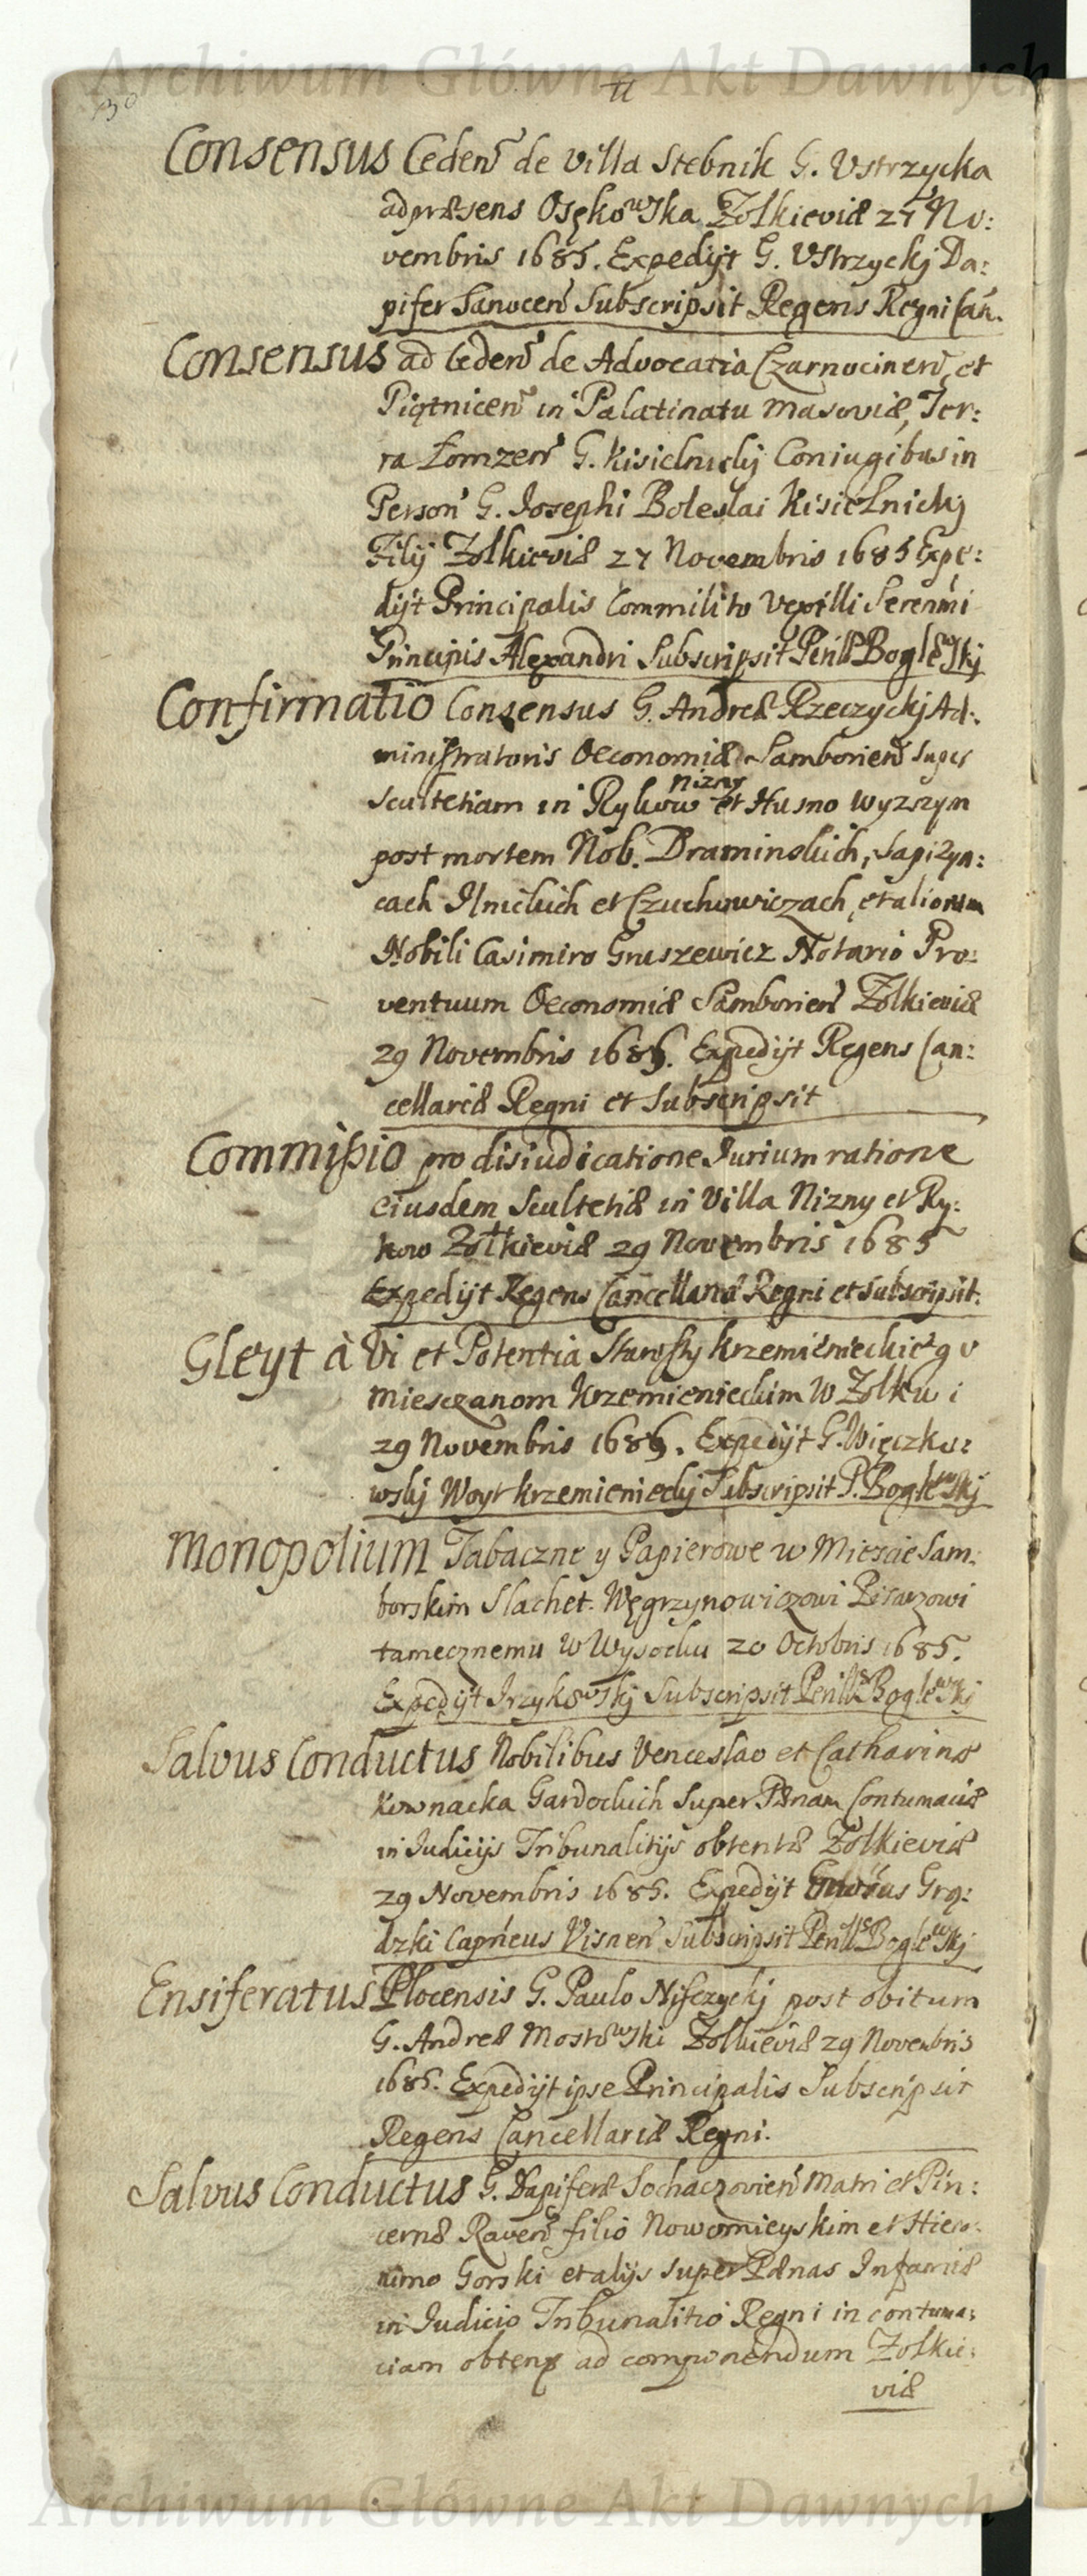 Archiwum Główne Akt Dawnych
130
Consensus Cedeñ de villa Stebnik G. Vstrzycka
adpræsens Osękowska Zolkieviæ 27 No:
vembris 1685. Expedijt G. VStrzyckj Da:
pifer Sanoceñ Subscripsit Regens Regni Can.
Consensus ad Cedeñ de Advocatia Czarnocineñ, et
Piątniceñ in Palatinatu Masoviæ, Ter:
ra Łomzeñ G. Kisielnickij Coniugibus in
Person̄ G. Josephi Boleslai Kisielnickj
Filij Zolkieviæ 27 Novembris 1685 Expe:
dijt Principalis Commilito Vexilli Serenmi
Principis Alexandri Subscripsit Perills Boglewskj
Confirmatio Consensus G. Andreæ Rzeczyckj Ad:
ministratoris Oeconomiæ Samborieñ super
Nizny
Scultetiam in Rykow et Husno Wyzszym
post mortem Nob. Draminskich, Sapizyn:
cach Ilnickich et Czuchowiczach, et aliorum
Nobili Casimiro Gruszewicz Notario Pro:
ventuum Oeconomiæ Samborieñ Zolkieviæ
29 Novembris 1685. Expedijt Regens Can:
cellariæ Regni et Subscripsit
Commißio pro disiudicatione Iurium ratione
eiusdem Scultetiæ in Villa Nizny et Ry:
kow Zołkieviæ 29 Novembris 1685
Expedijt Regens Cancellariæ Regni et subscripsit.
Gleyt à Vi et Potentia Starosty Krzemienieckiego
Miesczanom Krzemienieckim W Zolkwi
29 Novembris 1685. Expedijt G. Więczko:
wskj Woyt Krzemienieckj Subscripsit P. Boglewskj
Monopolium Tabaczne y Papierowe w Miescie Sam:
borskim Slachet. Węgrzynowiczowi Pisarzowi
tamecznemu W Wysocku 20 Octobris 1685.
Expedijt Irzykowskj Subscripsit Perills Boglewskj
Salvus Conductus Nobilibus Venceslao et Catharinæ
Kownacka Gardockich Super Pænam Contumaciæ
in Iudicijs Tribunalitijs obtentæ Zolkieviæ
29 Novembris 1685. Expedijt Grą:
dzki Capneus Visneñ Subscripsit Perills Boglewskj
Ensiferatus Plocensis G. Paulo Nisczyckj post obitum
G. Andreæ Mostowski Zolkieviæ 29 Novembris
1685. Expedijt ipse Principalis Subscripsit
Regens Cancellariæ Regni.
Salvus Conductus G. Dapiferæ Sochaczovieñ Matri et Pin:
cernæ Raveñ filio Nowomieyskim et Hiero:
nimo Gorski et alijs super Pænas Infamiæ
in Iudicio Tribunalitio Regni in contuma:
ciam obtens ad componendum Zolkie:
viæ
Archiwum Główne Akt Dawnych